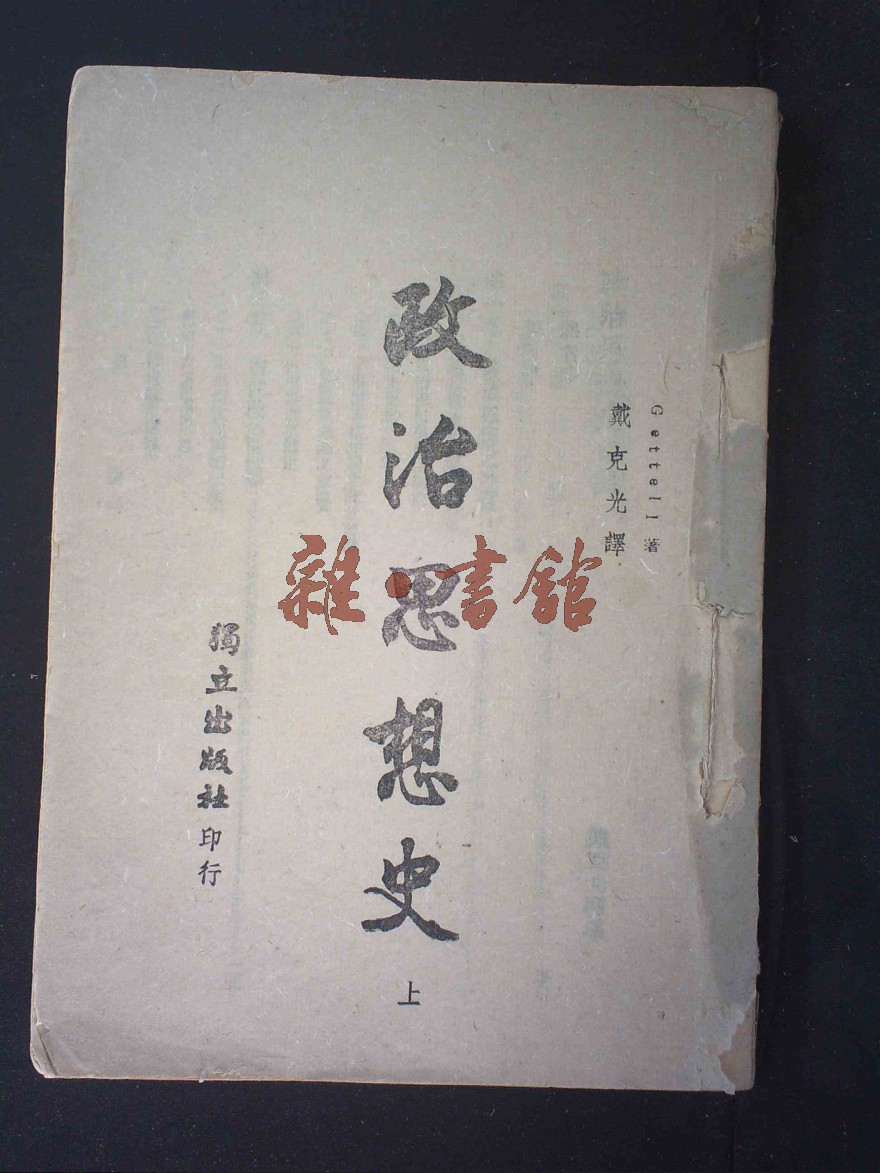 Gettell 著
戴克光譯
政治思想史 上
獨立出版社印行
雜·書館